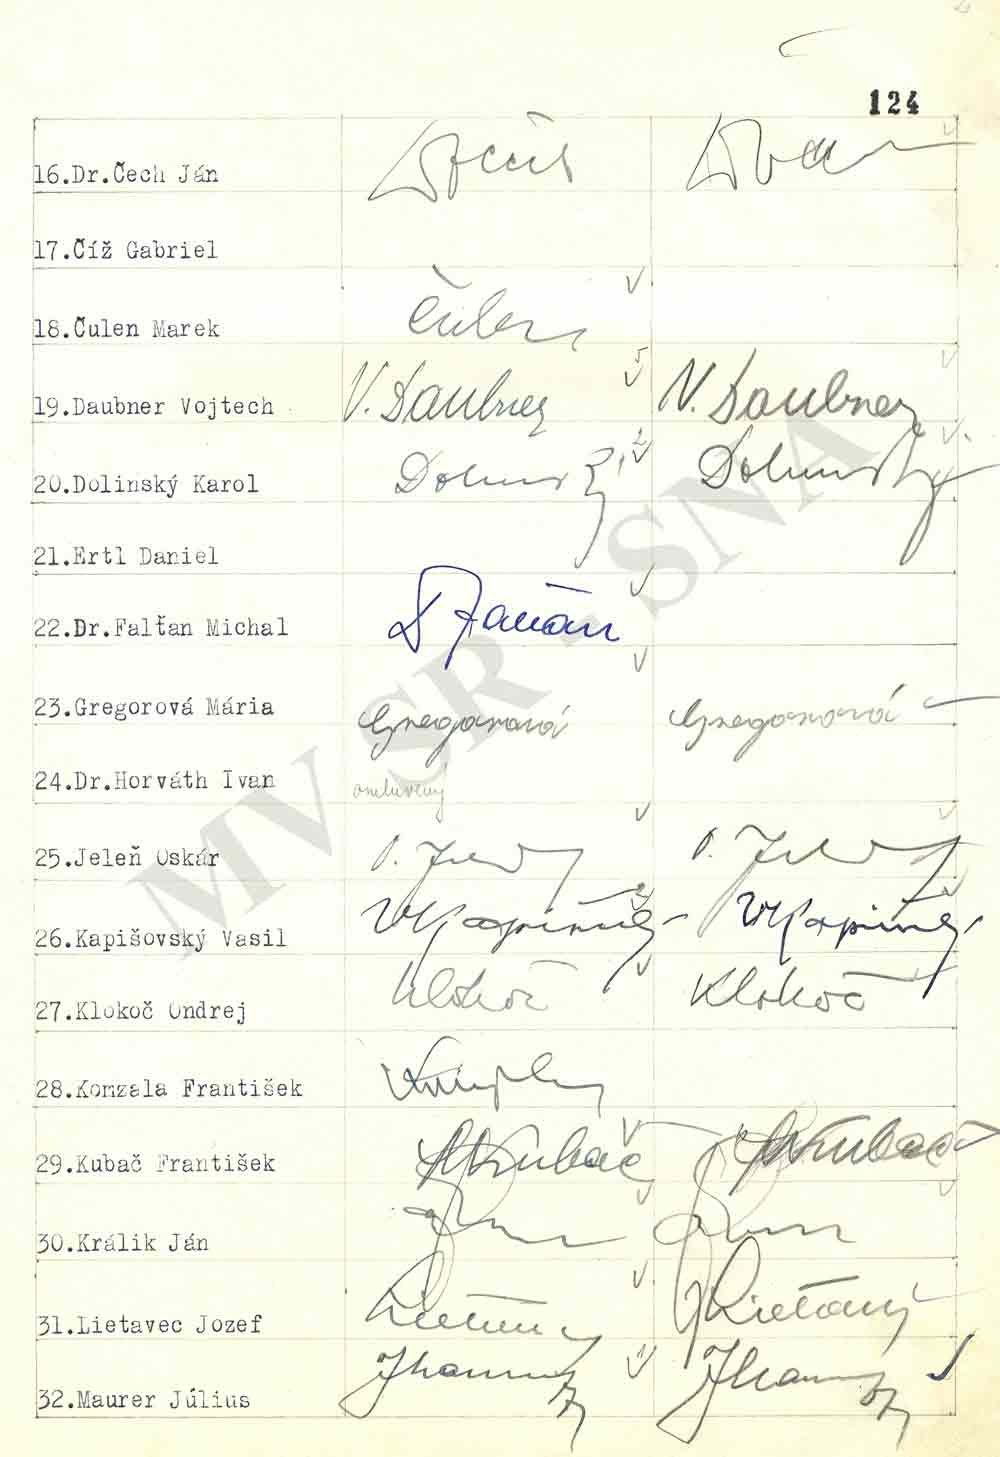 124
16.Dr.Čech Ján
17.Číž Gabriel
18.Čulen Marek Čulen
19.Daubner Vojtech V. Daubner V. Daubner
20.Dolinský Karol Dolinský Dolinský
21.Ertl Daniel
22.Dr.Falťan Michal
23.Gregorová Mária Gregorová Gregorová
24.Dr.Horváth Ivan omluvený
25.Jeleň Oskár
26.Kapišovský Vasil
27.Klokoč Ondrej Klokoč Klokoč
28.Komzala František
29.Kubač František Kubač Kubač
30.Králik Ján
31.Lietavec Jozef
32.Maurer Július
MV SR - SNA